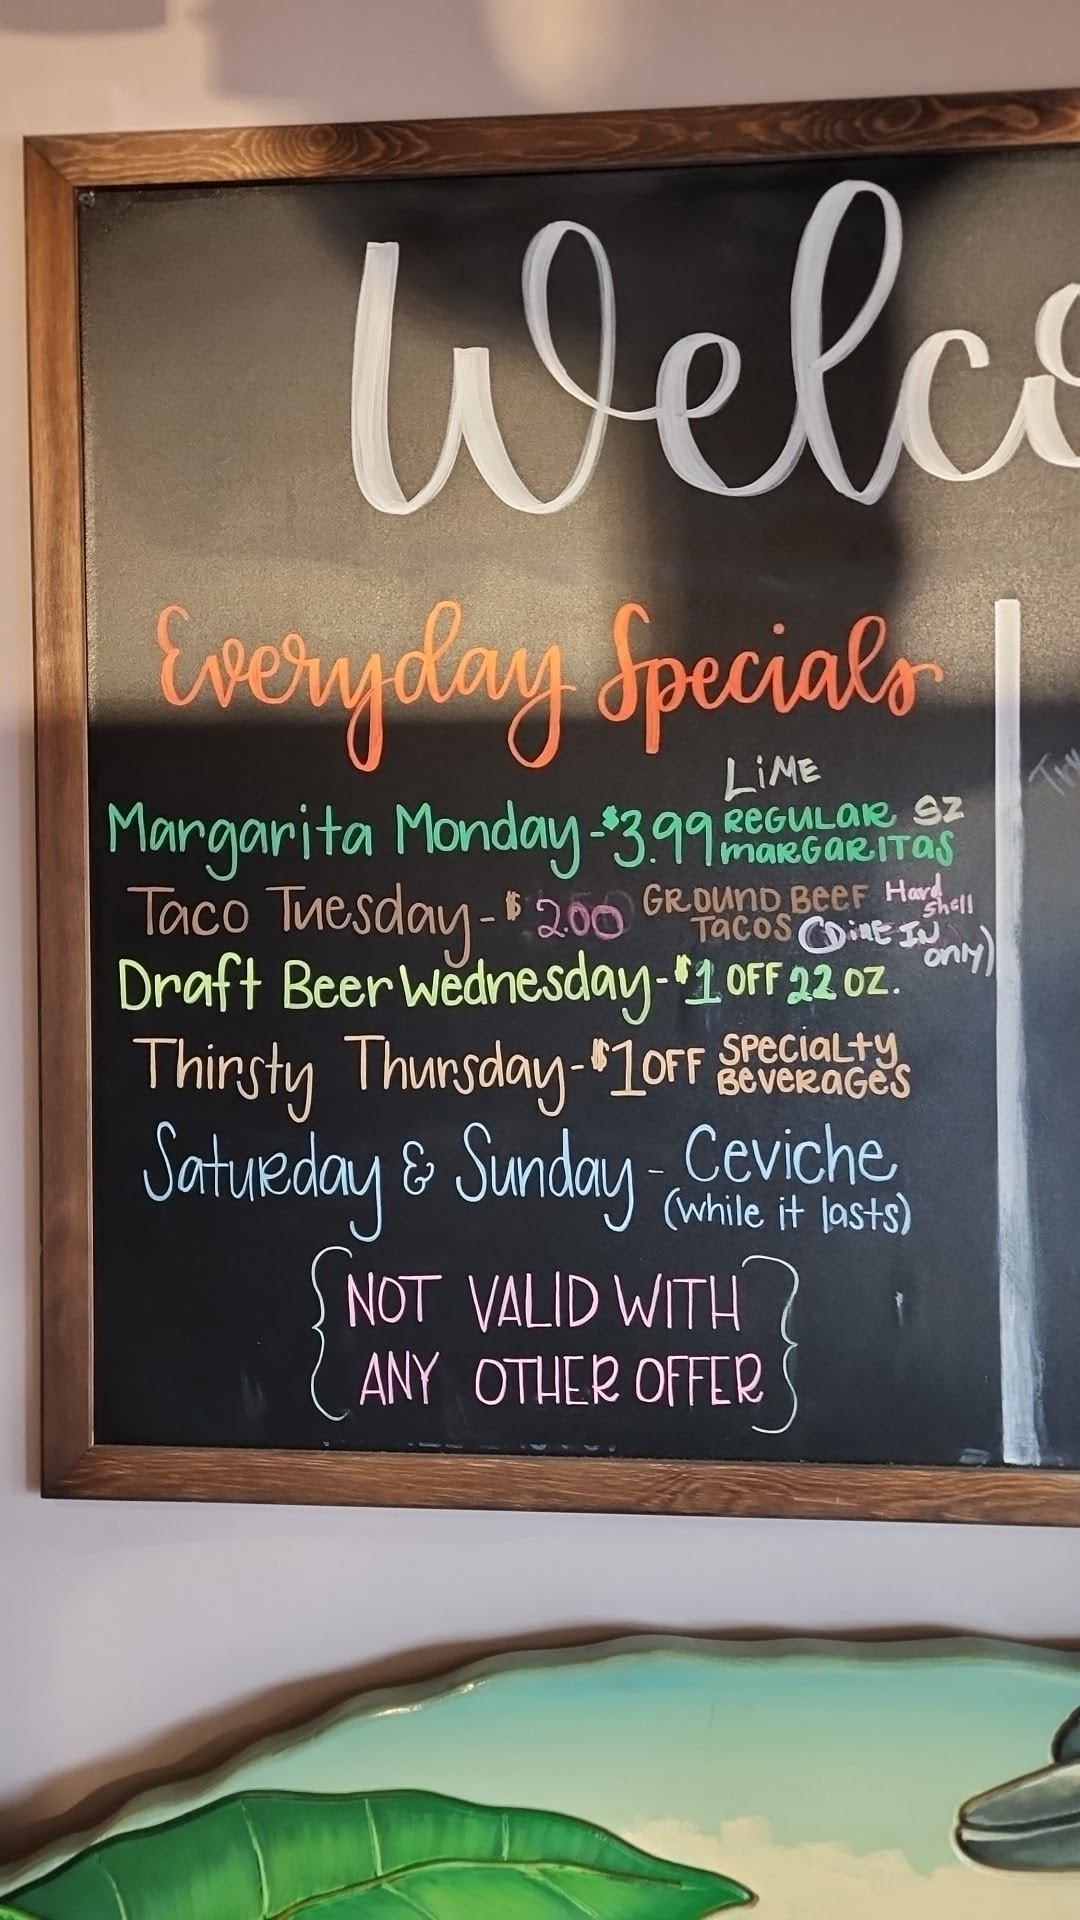 Welco
Everyday Specials
LiME
Margarita Monday - $3.99 REGULAR SZ
MARGARITAS
Taco Tuesday - $2.00 GROUND BEEF Hard Shell
TACOS (DiNE IN only)
Draft Beer Wednesday - $1 OFF 22 OZ.
Thirsty Thursday - $1 OFF SPECIALTY
BEVERAGES
Saturday & Sunday - Ceviche
(while it lasts)
{NOT VALID WITH
ANY OTHER OFFER}
Try